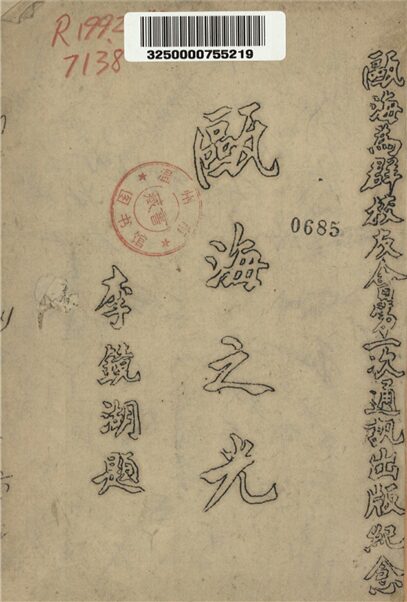 R 1992
7138
3250000755219
甌海為群校友會第一次通訊出版紀念
甌海之光
0685
李鏡湖題
溫州市圖书館
藏書